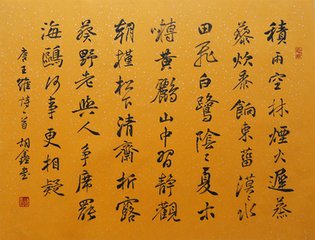 積雨空林煙火遲蒸
藜炊黍餉東菑漠〻水
田飛白鷺陰〻夏木
囀黃鸝山中習靜觀
朝槿松下清齋折露
葵野老與人爭席罷
海鷗何事更相疑
唐王維詩一首 胡鑫書